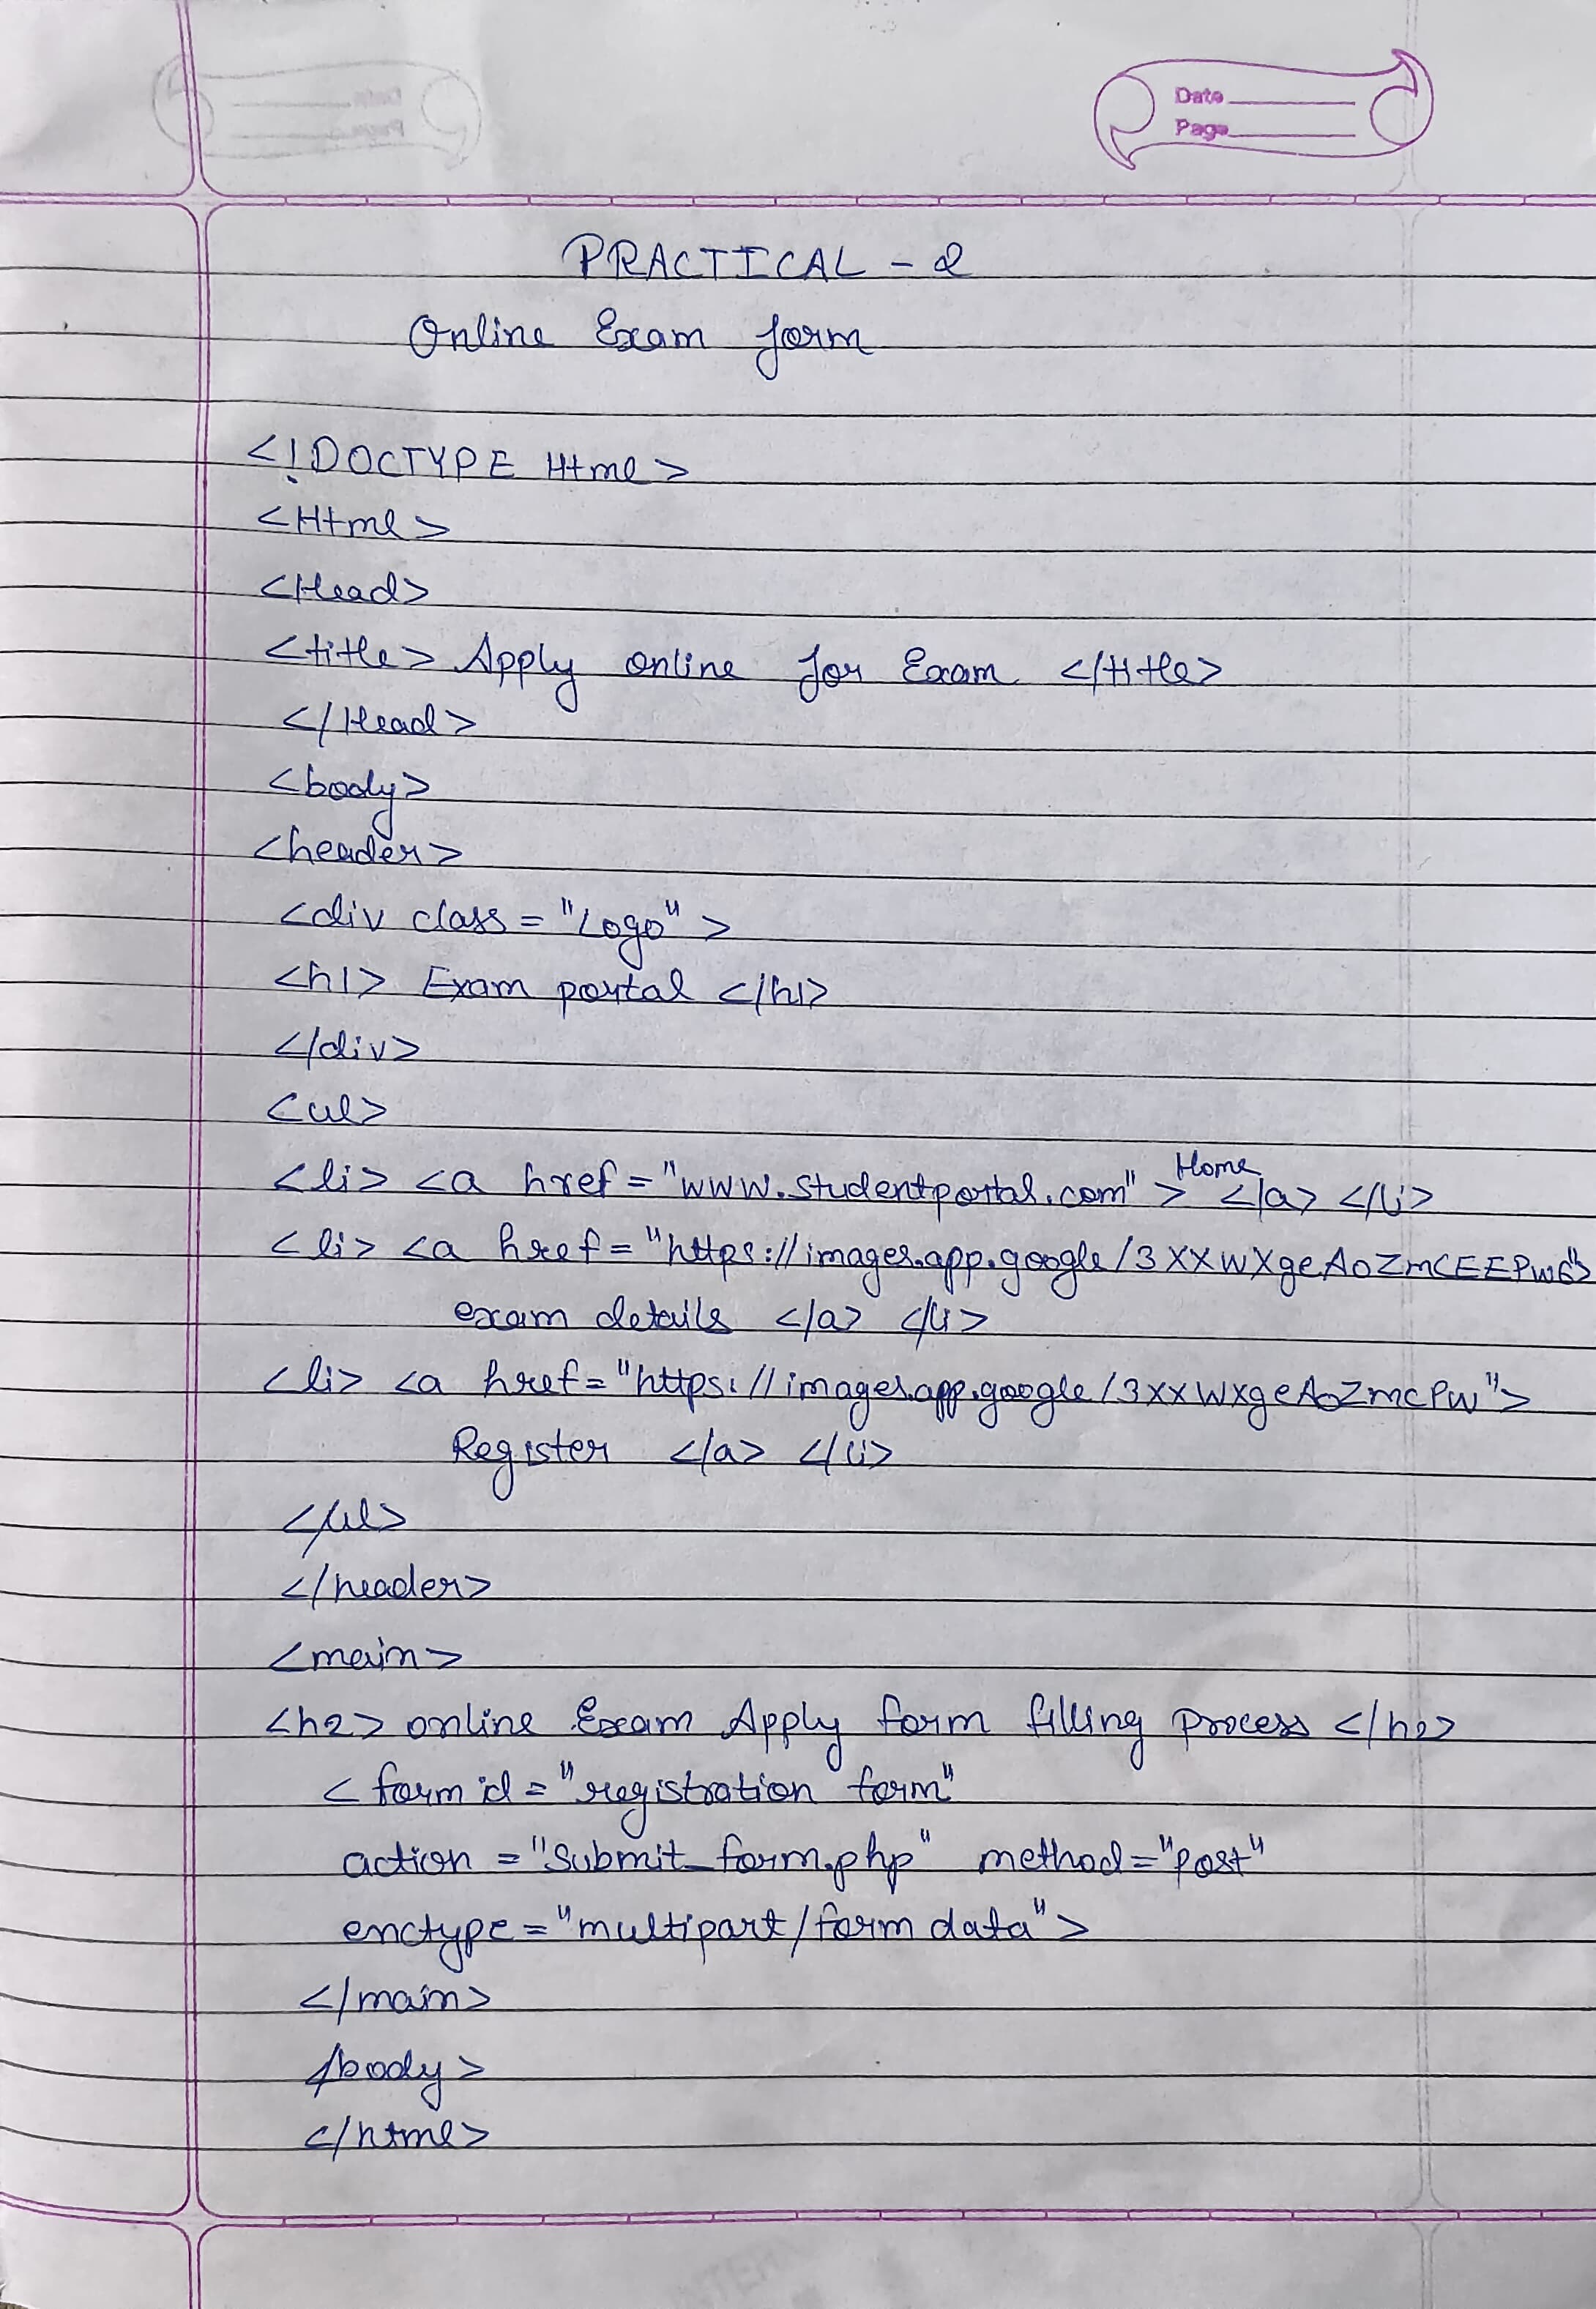 Date
Page
PRACTICAL - 2
Online Exam form
<!DOCTYPE Html>
<Html>
<Head>
<title> Apply online for Exam </title>
</Head>
<body>
<header>
<div class = "Logo" >
<h1> Exam portal </h1>
</div>
<ul>
<li> <a href = "www.studentportal.com" > Home </a> </li>
<li> <a href = "https://images.app.google/3XXWXgeAoZmCEEPW6">
exam details </a> </li>
<li> <a href = "https://images.app.google/3xxWxgeAoZmcPw">
Register </a> </li>
</ul>
</header>
<main>
<h2> online Exam Apply form filling process </h2>
< form id = "registration form"
action = "Submit_form.php" method = "post"
enctype = "multipart/form data" >
</main>
/body>
</html>